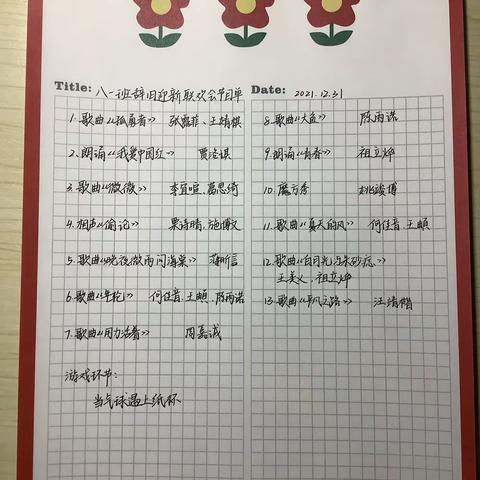 Title: 八一班辞旧迎新联欢会节目单
Date: 2021.12.31
1.歌曲《孤勇者》 张露菲、王婧祺
2.朗诵《我爱中国红》 贾洺淇
3.歌曲《微微》 李宜暄、葛思绮
4.相声《偷论》 栗诗晴、施博文
5.歌曲《晚夜微雨问海棠》 薄昕信
6.歌曲《年轮》 何佳音、王頔、陈雨诺
7.歌曲《用力活着》 闫嘉诚
游戏环节:
当气球遇上纸杯
8.歌曲《大鱼》 陈雨诺
9.朗诵《青春》 祖立烨
10.魔方秀 姚竣博
11.歌曲《夏天的风》 何佳音、王頔
12.歌曲《白月光与朱砂痣》
王美义、祖立烨
13.歌曲《平凡之路》 汪靖楷